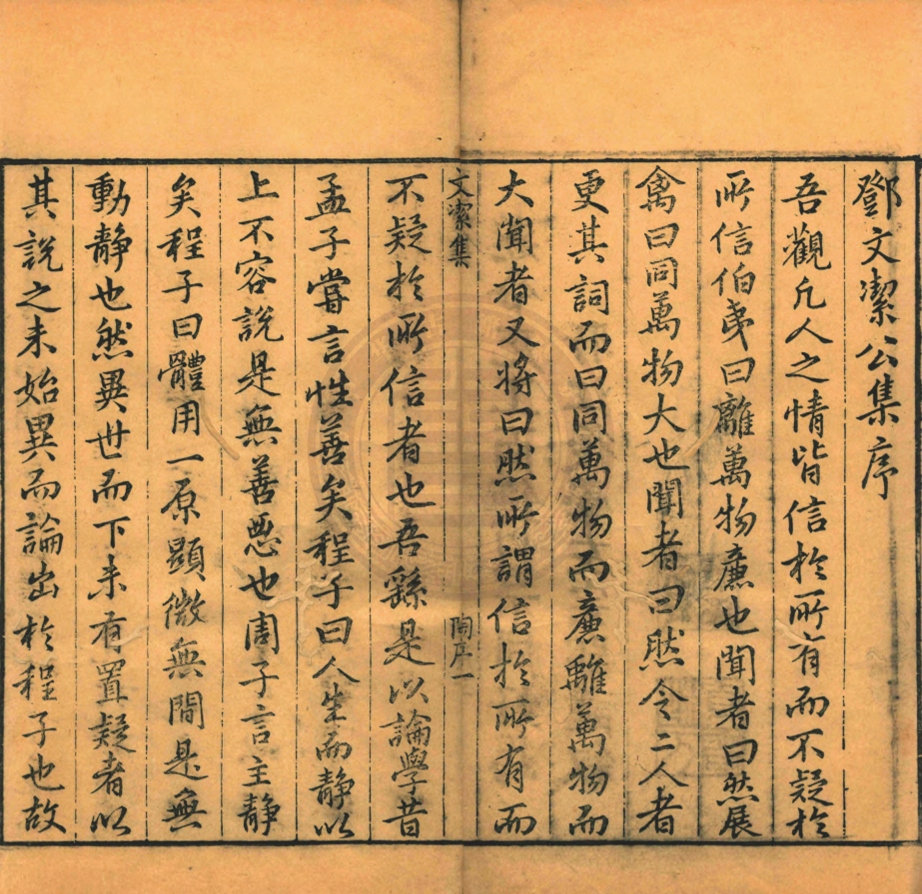 鄧文潔公集序
吾觀凢人之情皆信於所有而不疑於
所信伯夷曰離萬物廉也聞者曰然展
禽曰同萬物大也聞者曰然令二人者
更其詞而曰同萬物而廉離萬物而
大聞者又将曰然所謂信於所有而
文潔集
陶序一
不疑於所信者也吾繇是以論學昔
孟子嘗言性善矣程子曰人生而静以
上不容說是無善惡也周子言主静
矣程子曰體用一原顯微無間是無
動静也然異世而下未有置疑者以
其說之未始異而論出於程子也故